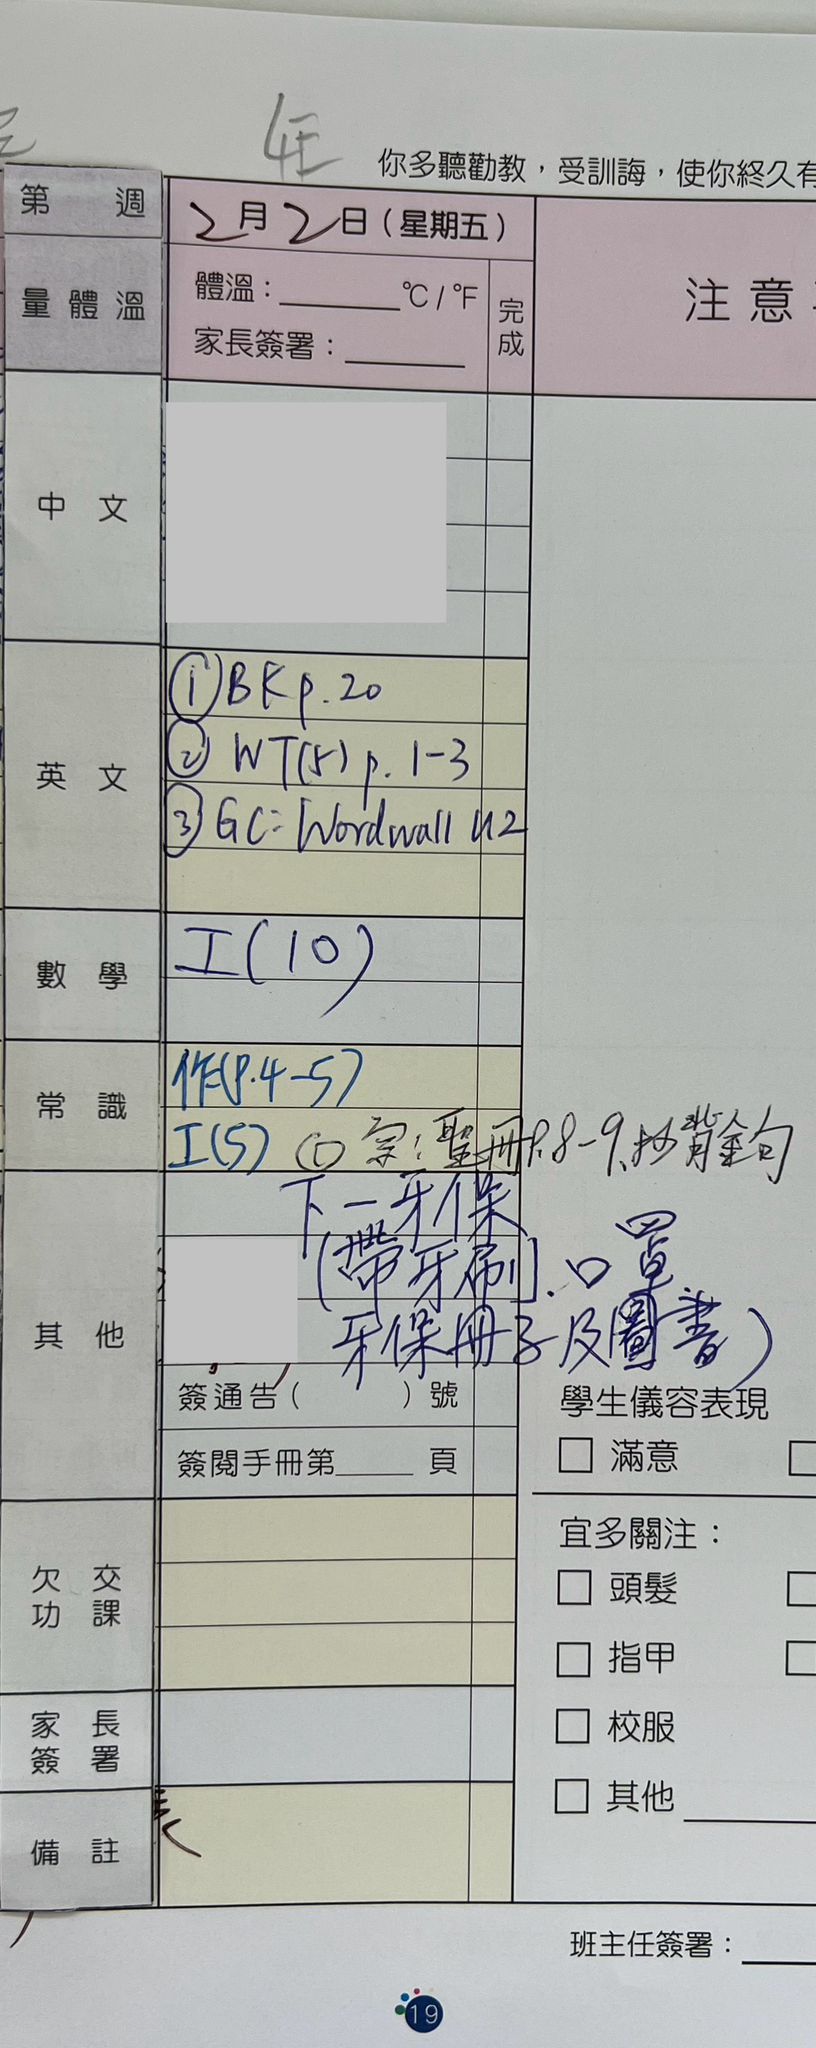 年
你多聽勸教，受訓誨，使你終久有
第 週
2月2日（星期五）
量體溫
體溫：______°C / °F
家長簽署：______
完成
注意
中文
英文
① BK p. 20
② WT(5) p. 1-3
③ GC: Wordwall U2
數學
工(10)
常識
作(P.4-5)
工(5)
宗：聖冊P.8-9、抄背金句
其他
下一牙保
(帶牙刷、口罩
牙保冊子及圖書)
簽通告（ ）號
簽閱手冊第____頁
學生儀容表現
□ 滿意
宜多關注：
□ 頭髮
□ 指甲
□ 校服
□ 其他
欠交功課
家長簽署
備註
班主任簽署：
19